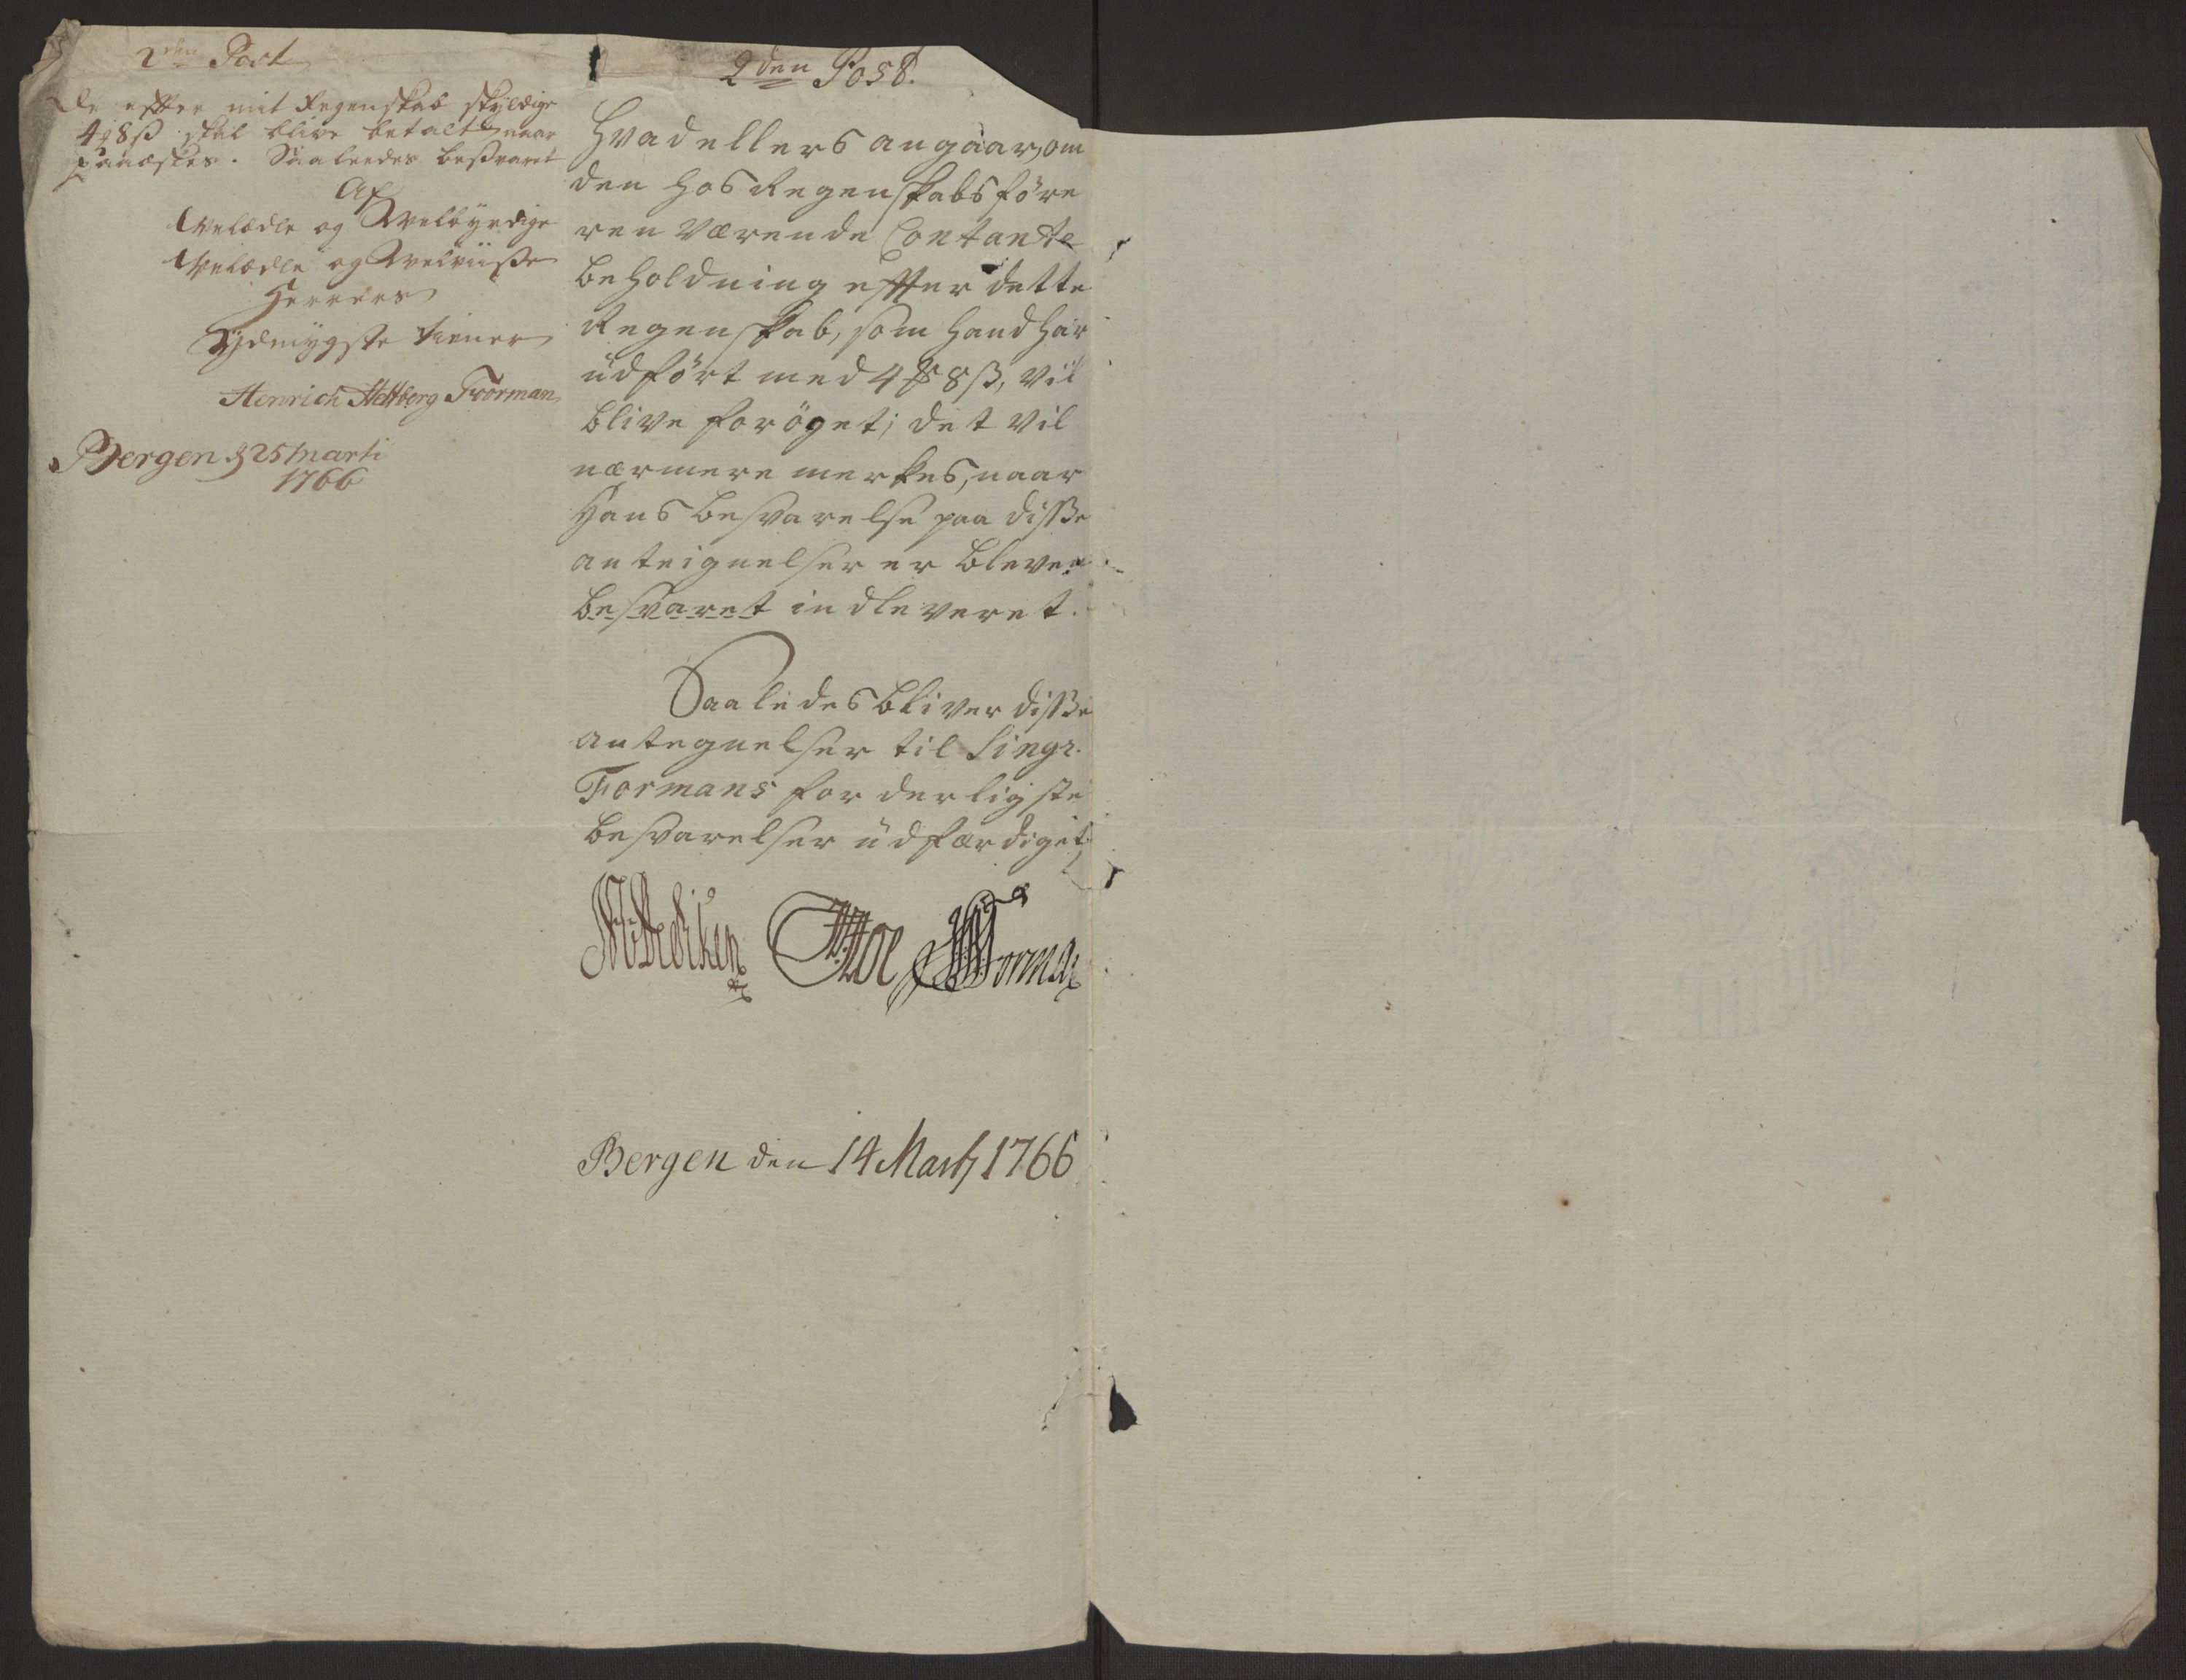 2den Post
De effter mit Regenskab skyldige
4 8 ß skal blive betalt naar
paaæskes. Saaleedes beßvaret
Af
Velædle og Velbyrdige
Velædle og Velviise
Herrers
Ydmygste tiener
Henrich Hettberg Foorman
Bergen d 25 Marti
1766
2den Post.
Hvad ellers angaar, om
den hos Regenskabsföre
ren værende Contante
beholdning effter dette
Regenskab, som hand har
udfört med 4 8 ß, vil
blive forøget; det vil
nærmere merkes, naar
Hans besvarelse paa disse
anteignelser er bleven
besvaret indleveret.
Saaledes bliver disse
antegnelser til Singr.
Formans forderligste
besvarelser udfærdiget,
Bergen den 14 Martz 1766